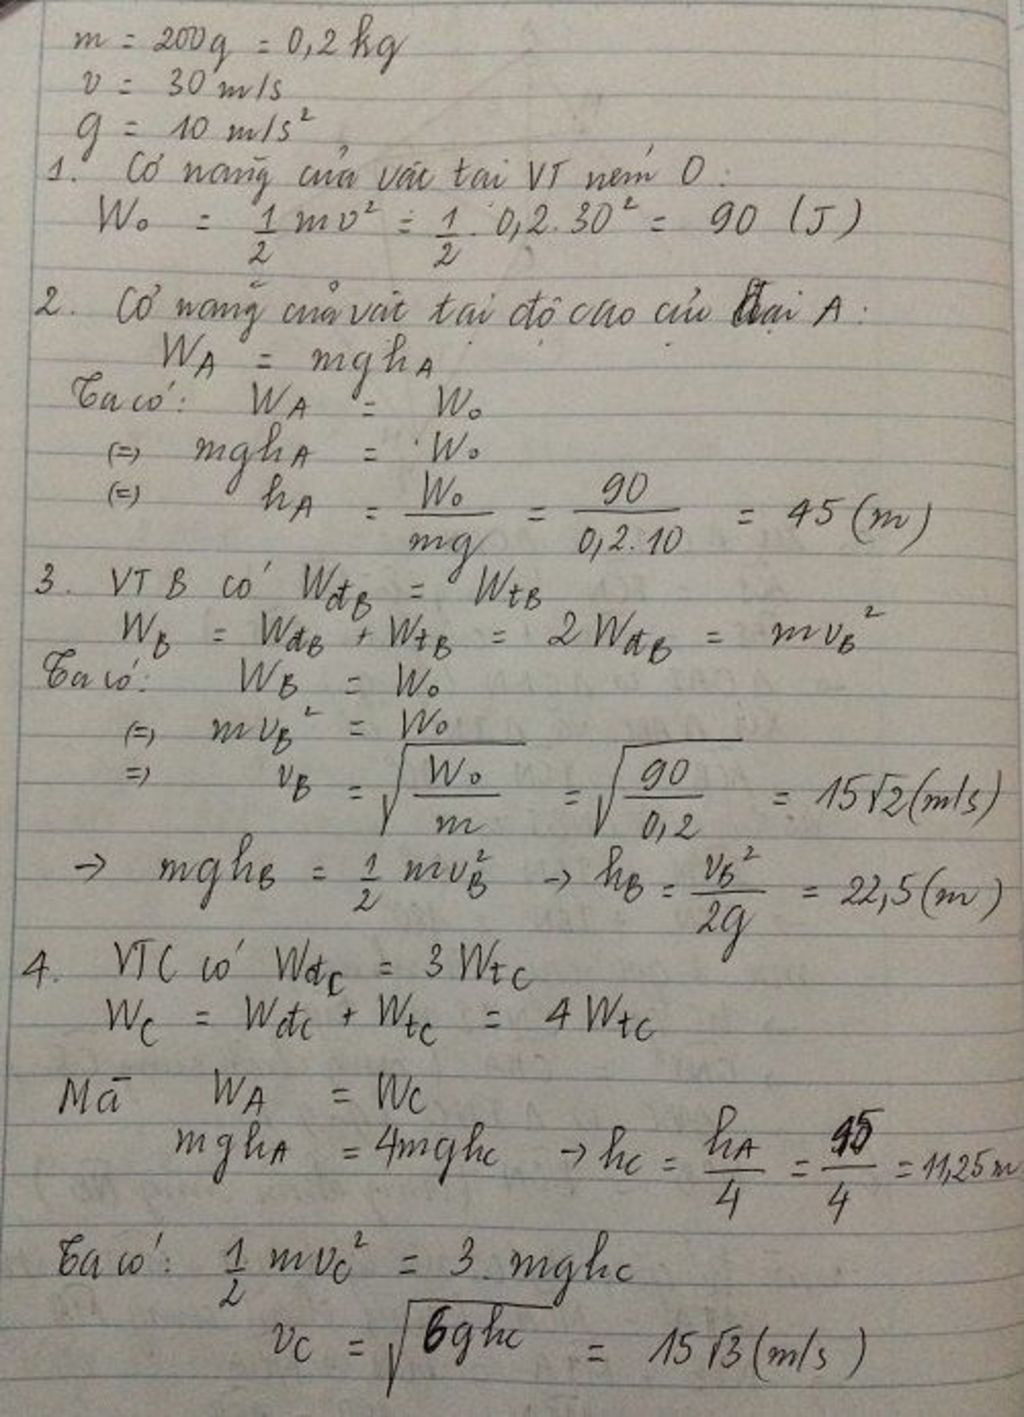 m = 200g = 0,2 kg
v = 30 m/s
g = 10 m/s²
1. Cơ năng của vât tai VT ném O:
W₀ = 1/2 mv² = 1/2 . 0,2.30² = 90 (J)
2. Cơ năng của vât tại độ cao cưc đại A:
W_A = mgh_A
Ta có: W_A = W₀
(=) mgh_A = W₀
(=) h_A = W₀/mg = 90/0,2.10 = 45 (m)
3. VT B có W_đB = W_tB
W_B = W_đB + W_tB = 2W_đB = mv_B²
Ta có: W_B = W₀
(=) mv_B² = W₀
=) v_B = √(W₀/m) = √(90/0,2) = 15√2 (m/s)
→ mgh_B = 1/2 mv_B² → h_B = v_B²/2g = 22,5 (m)
4. VT C có W_đC = 3W_tC
W_C = W_đC + W_tC = 4W_tC
Mà W_A = W_C
mgh_A = 4mgh_C → h_C = h_A/4 = 45/4 = 11,25 m
Ta có: 1/2 mv_C² = 3. mgh_C
v_C = √(6gh_C) = 15√3 (m/s)